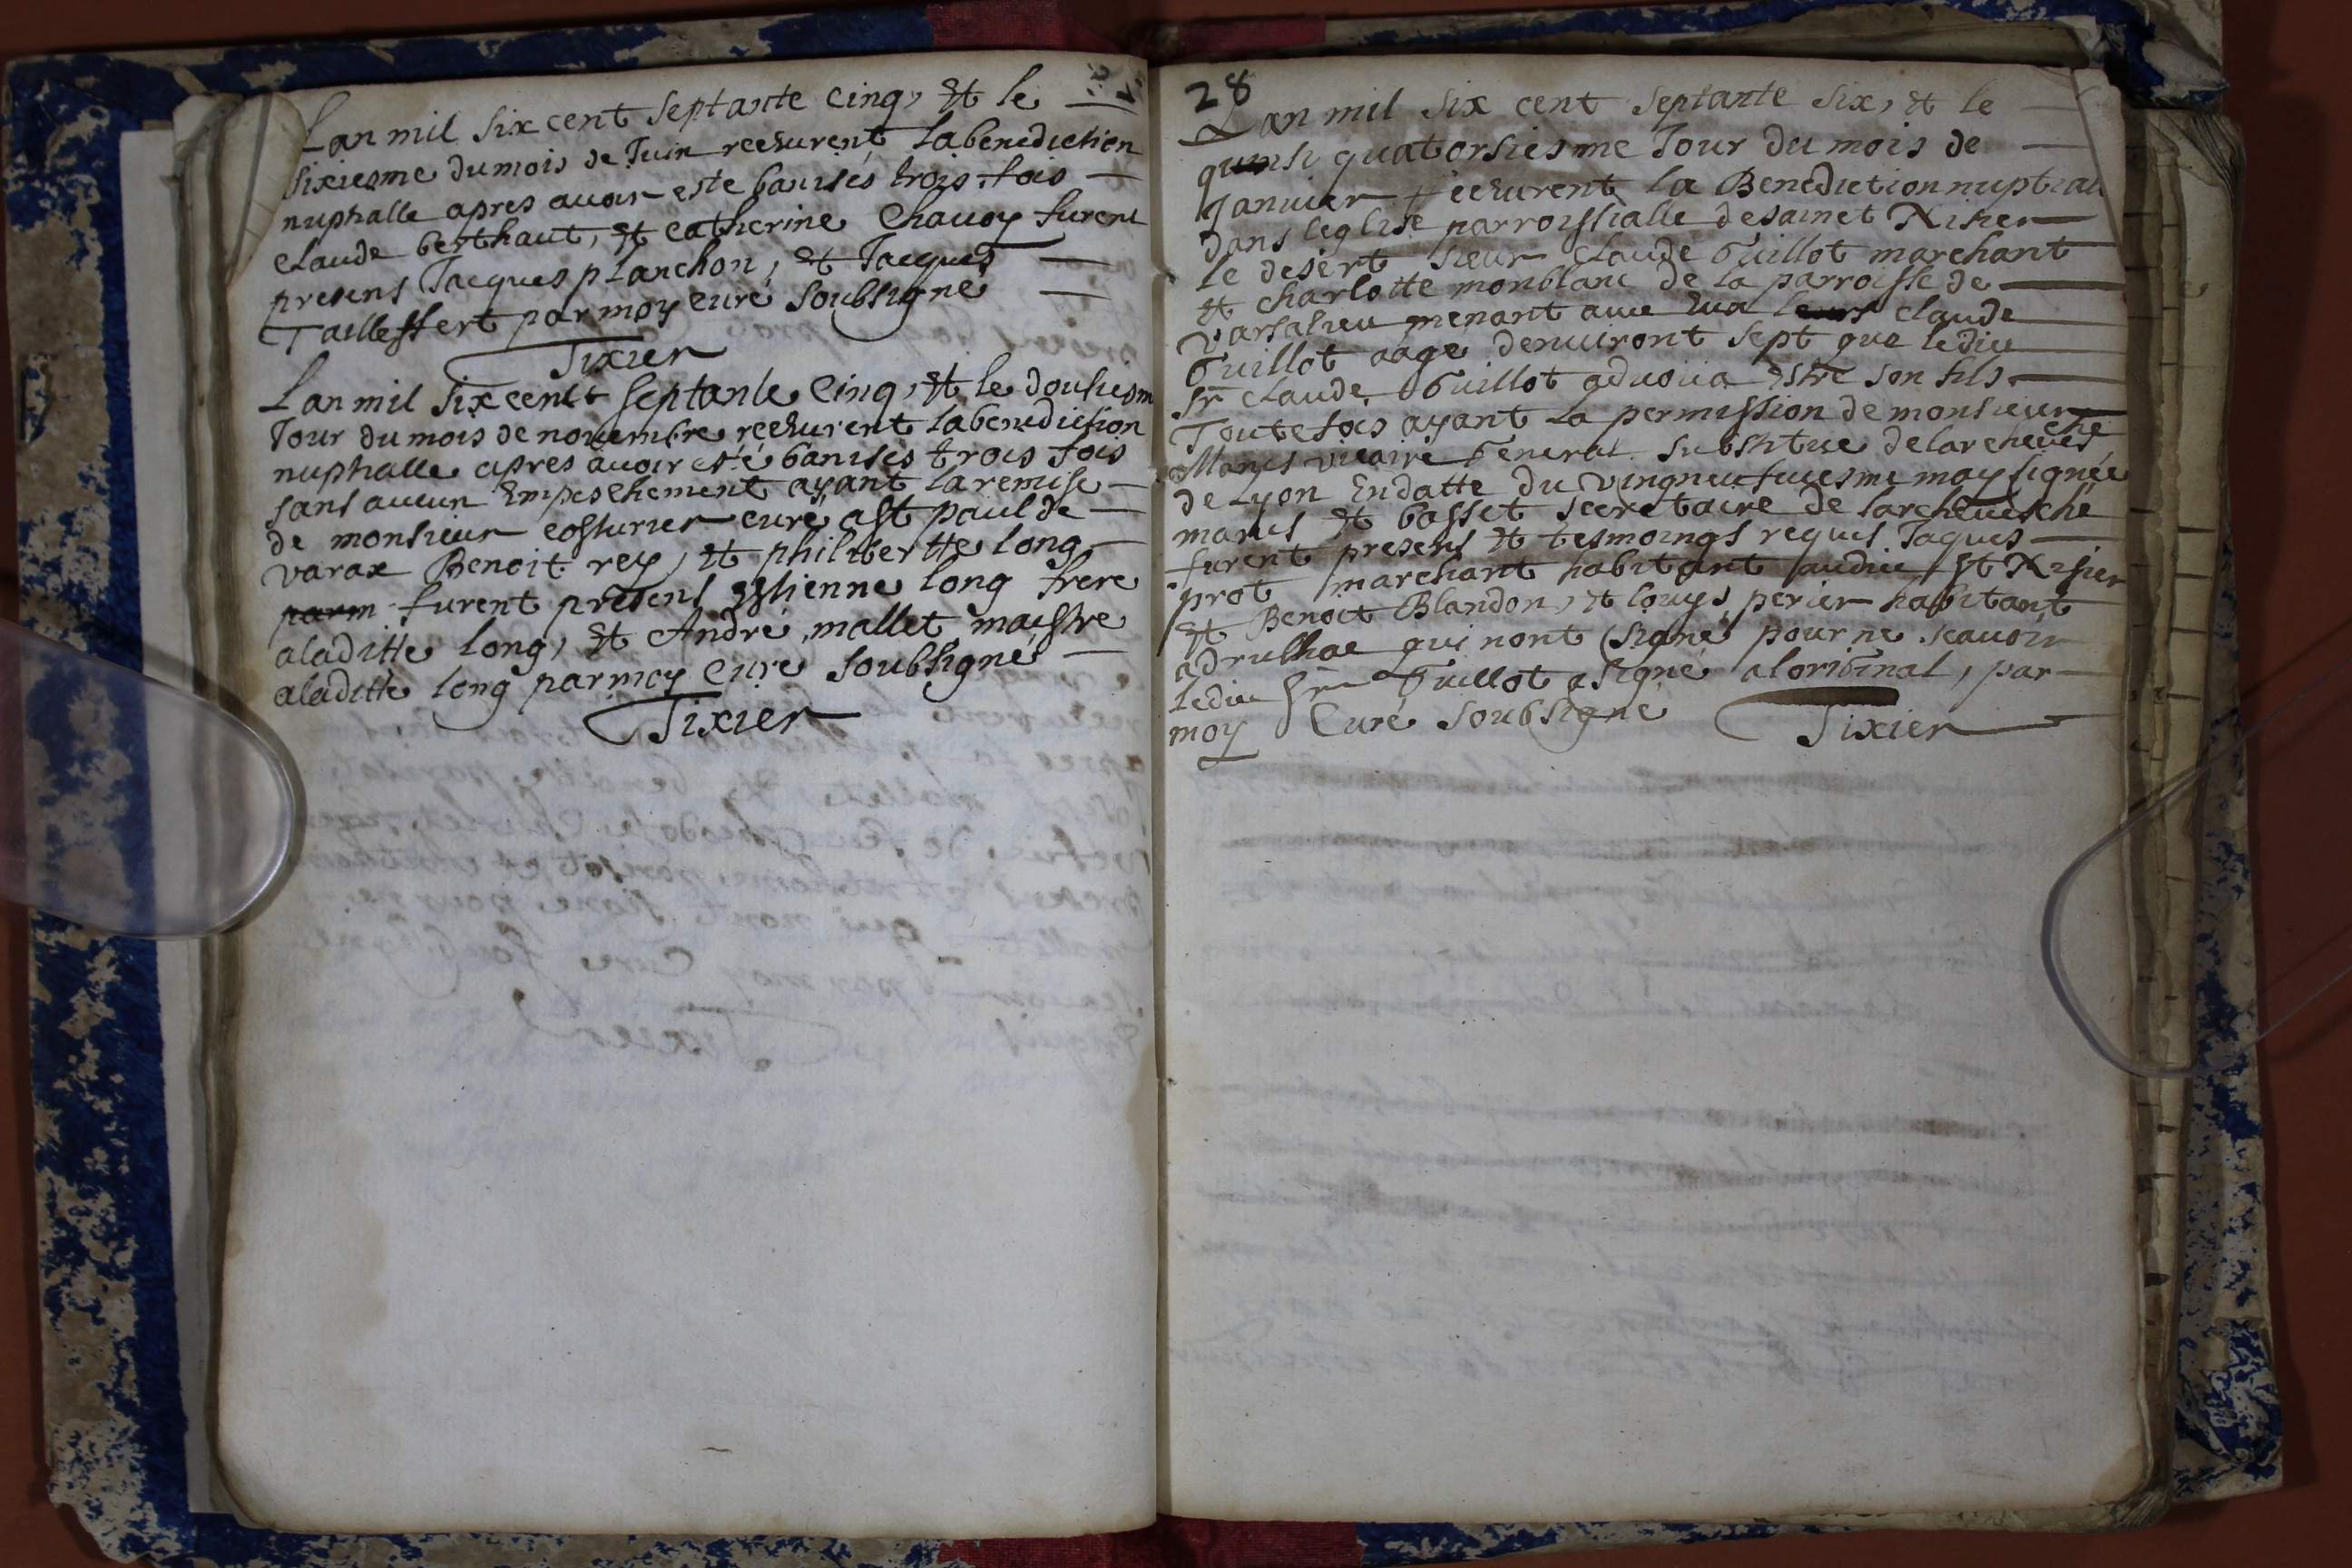 Lan mil six cent septante cinq, et le
sixiesme du mois de Juin receurent la benediction
nuphalle apres avoir este banises trois fois
claude berthaut, et catherine Chavoy furent
presens Jacques planchon, et Jacques
Taillesfert par moy curé soubsigné
Tixier
Lan mil six cent septante cinq, et le dousiesm
Jour du mois de novembre receurent la benediction
nuphalle apres avoir esté banises trois fois
sans aucun Empeschement ayant la remise
de monsieur costurier curé a st paul de
varax Benoit rey, et philiberte long
furent presens Estienne long frere
a laditte long, et André mallet maistre
a laditte long par moy Curé soubsigné
Tixier
28
Lan mil six cent septante six, et le
quatorsiesme Jour du mois de
Janvier receurent la Benediction nuptiall
dans leglise parroissialle de sainct Nisier
le desert sieur Claude Guillot marchant
et charlotte monblanc de la parroisse de
varsalieu menant avec eux claude
Guillot aage denviront sept que ledict
sr claude Guillot advoüa Estre son fils
Toutefois ayant la permission de monsieur
Manis vicaire General substitue de larcheveschè
de Lyon En datte du vingneufviesme may signée
manis et basset secretaire de larchevesché
furent presens et tesmoings requis Jaques
prot marchant habitant audict st Nisier
et Benoit Blandon, et louys perier habitant
a drulhae qui nont signé pour ne scavoir
ledict sr Guillot a signé a loriginal, par
moy Curé soubsigné Tixier